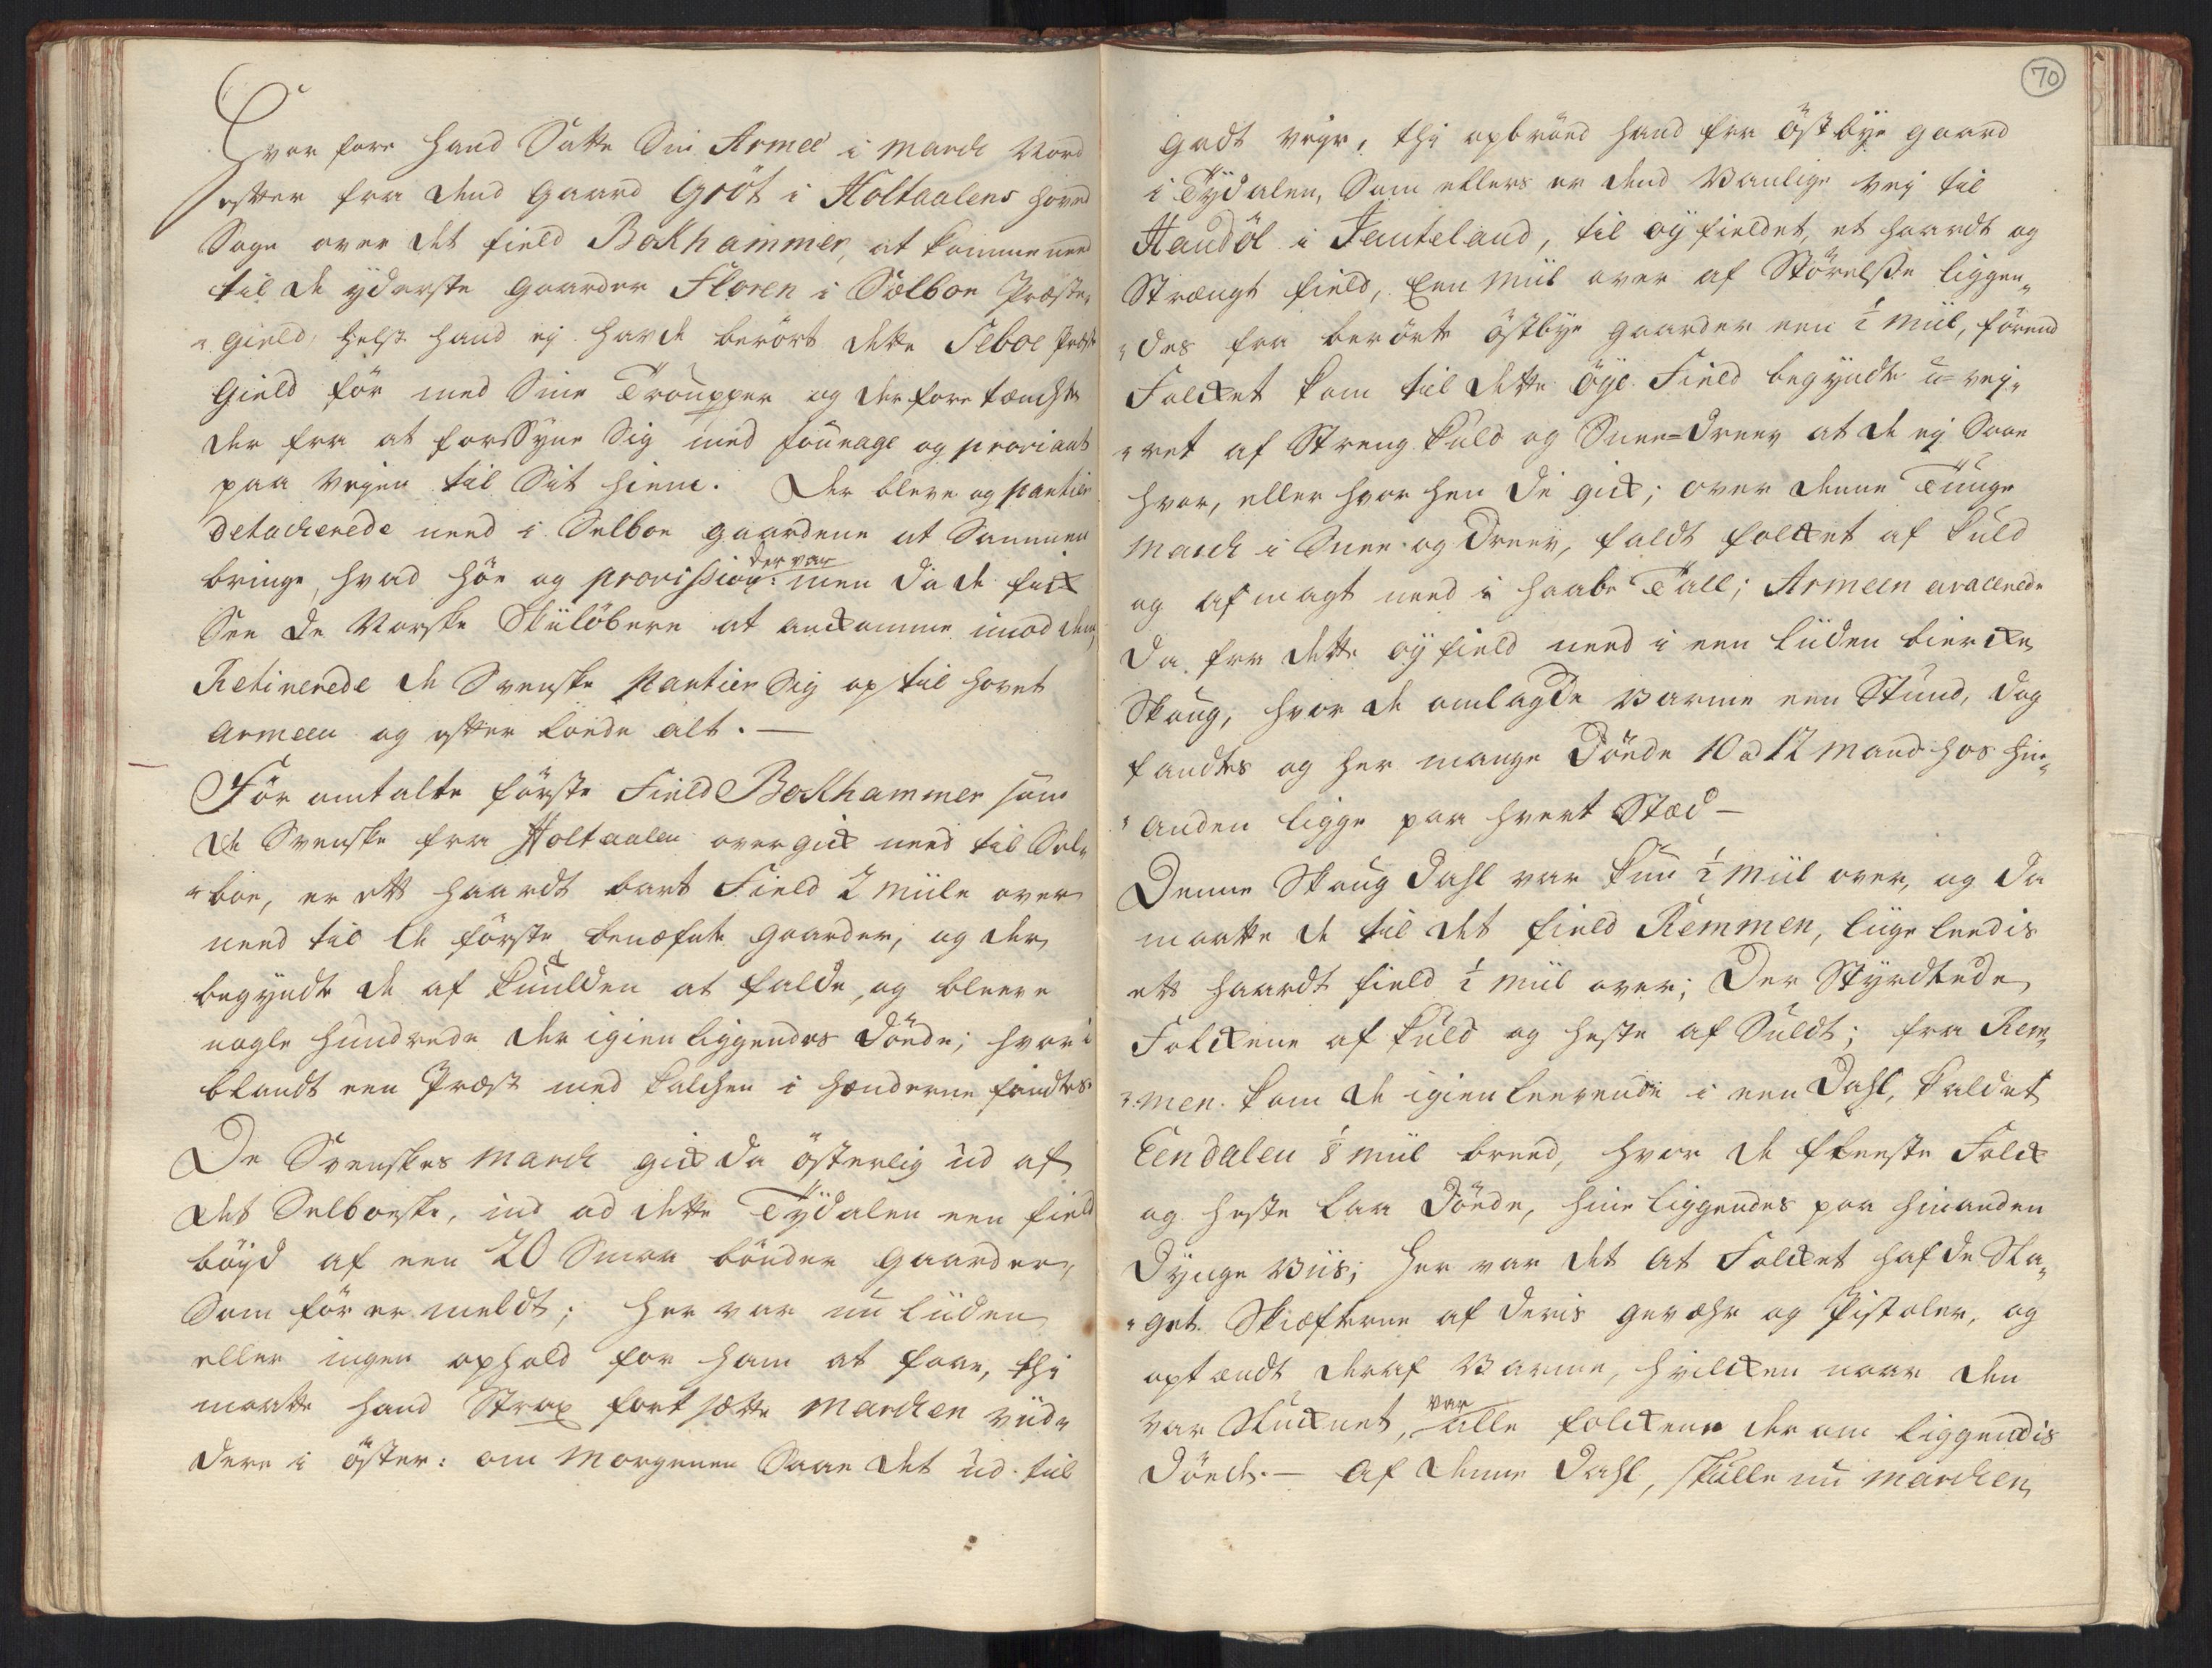 Hvor fore hand Satte Sin Armeé i March Nord
øster fra dend gaard Gröt i Holtaalens hoved
Sogn over det field Bokhammer, at komme need
til de yderste gaarder Floren i Sælboe Præste-
-gield, helst hand ej havde berört dette Selboe Præste
Gield för med Sine Troupper og derfore tænchte
der fra at forsÿne Sig med fourage og proviant
paa Veyen til Sit hiem. Der bleve og partier
detacherede need i Selboe gaardene at Sammen
bringe, hvad höe og provission: der var men da de fick
See de Norske Skielöbere at anckomme imod dem,
Retirerede de Svenske Partier Sig op til hovet
armeen og effter loede alt. —
För omtalte förste Field Bokhammer som
de Svenske fra Holtaalen over gick need til Sel-
-boe, er ett haardt bart Field 2 miile over
need til de förste benæfnte gaarder, og der
begyndte de af kuulden at falde, og bleeve
nogle hundrede der igien liggendes döede; hvor i
blandt een Præst med kalchen i hænderne fandtes.
De Svenskes March gick da österlig ud af
det Selboeske, ind ad dette Tÿdalen een field
böyd af een 20 Smaa bönder gaarder,
Som för er meldt; her var nu liiden
eller ingen ophold for ham at faae, thi
maatte hand Strax fortsætte Marchen viid-
dere i öster: om Morgenen Saae det ud til
70
godt veyr, thi opbröed hand fra östbye gaard
i Tÿdalen, Som ellers er dend Vanlige vey til
Handöl i Jemteland, til öyfieldet, et haardt og
Strængt field, Een Miil over af Störelse liggen-
-des fra berörte östbye gaarder een ½ Miil, förend
Folcket kom til dette öye Field begyndte u-vey-
-ret af Streng kuld og Snee-dreev at de ej Saae
hvor, eller hvor hen de gick; over denne Tunge
March i Snee- og dreev, faldt folcket af kuld
og afmagt need i haabe Tall; Armeen avacerede
da fra dette öy field need i een liiden biercke
Skoug, hvor de omlagde Varme een Stund, dog
fandtes og her mange döede 10 a 12 Mand hos hin-
-anden ligge paa hvert Stæd —
Denne Skoug dahl var kun ½ Miil over, og da
maatte de til det field Remmen, liige leedis
ett haardt field ½ Miil over; Der Styrdtede
Folckene af kuld og heste af Suldt; fra Rem-
-men kom de igien leevende i een Dahl, kaldet
Eendalen ⅛ miil breed, hvor de fleeste Folck
og heste laae döede, hine liggendes paa hinanden
dynge Viis; her var det at Folcket hafde Sla-
-get Skiæfterne af deris gevæhr og Pistoler, og
optændt deraf Varme, hvilcken naar den
var Slucknet, var alle folckene der om liggendis
döede. — Af denne Dahl, skulle nu Marchen